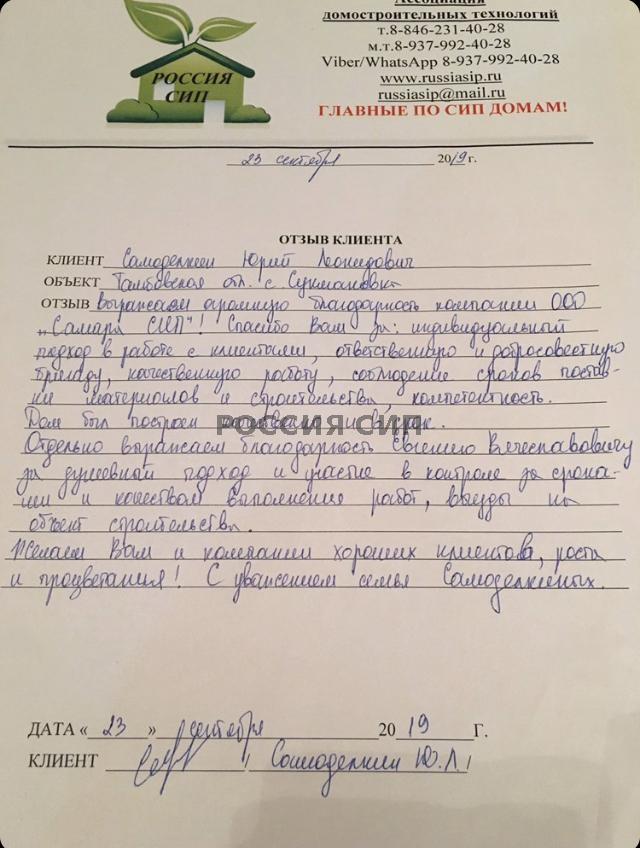 Ассоциация
домостроительных технологий
т.8-846-231-40-28
м.т.8-937-992-40-28
Viber/WhatsApp 8-937-992-40-28
www.russiasip.ru
russiasip@mail.ru
ГЛАВНЫЕ ПО СИП ДОМАМ!
РОССИЯ
СИП
23 сентября 2019 г.
ОТЗЫВ КЛИЕНТА
КЛИЕНТ Самоделкин Юрий Леонидович
ОБЪЕКТ Тамбовская обл. с. Сукмановка
ОТЗЫВ Выражаем огромную благодарность компании ООО
"Самара СИП"! Спасибо Вам за: индивидуальный
подход в работе с клиентами, ответственную и добросовестную
бригаду, качественную работу, соблюдение сроков постав-
ки материалов и строительства, компетентность.
Дом был построен качественно и в срок.
РОССИЯ СИП
Отдельно выражаем благодарность Евгению Вячеславовичу
за душевный подход и участие в контроле за срока-
ми и качеством выполнения работ, выезды на
объект строительства.
Желаем Вам и компании хороших клиентов, роста
и процветания! С уважением семья Самоделкиных.
ДАТА «23» сентября 2019 Г.
КЛИЕНТ / Самоделкин Ю.Л./